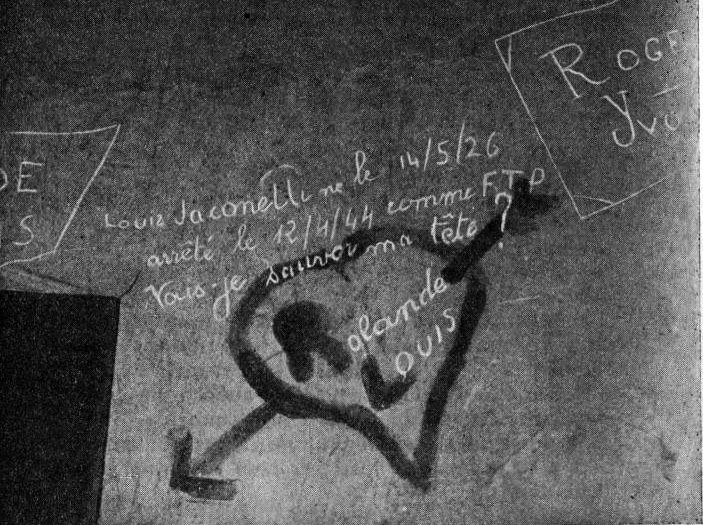 ROGE
Yvo
DE
S
Louis Jaconelli né le 14/5/26
arrêté le 12/4/44 comme F.T.P
Vais-je sauver ma tête ?
Rolande
LOUIS